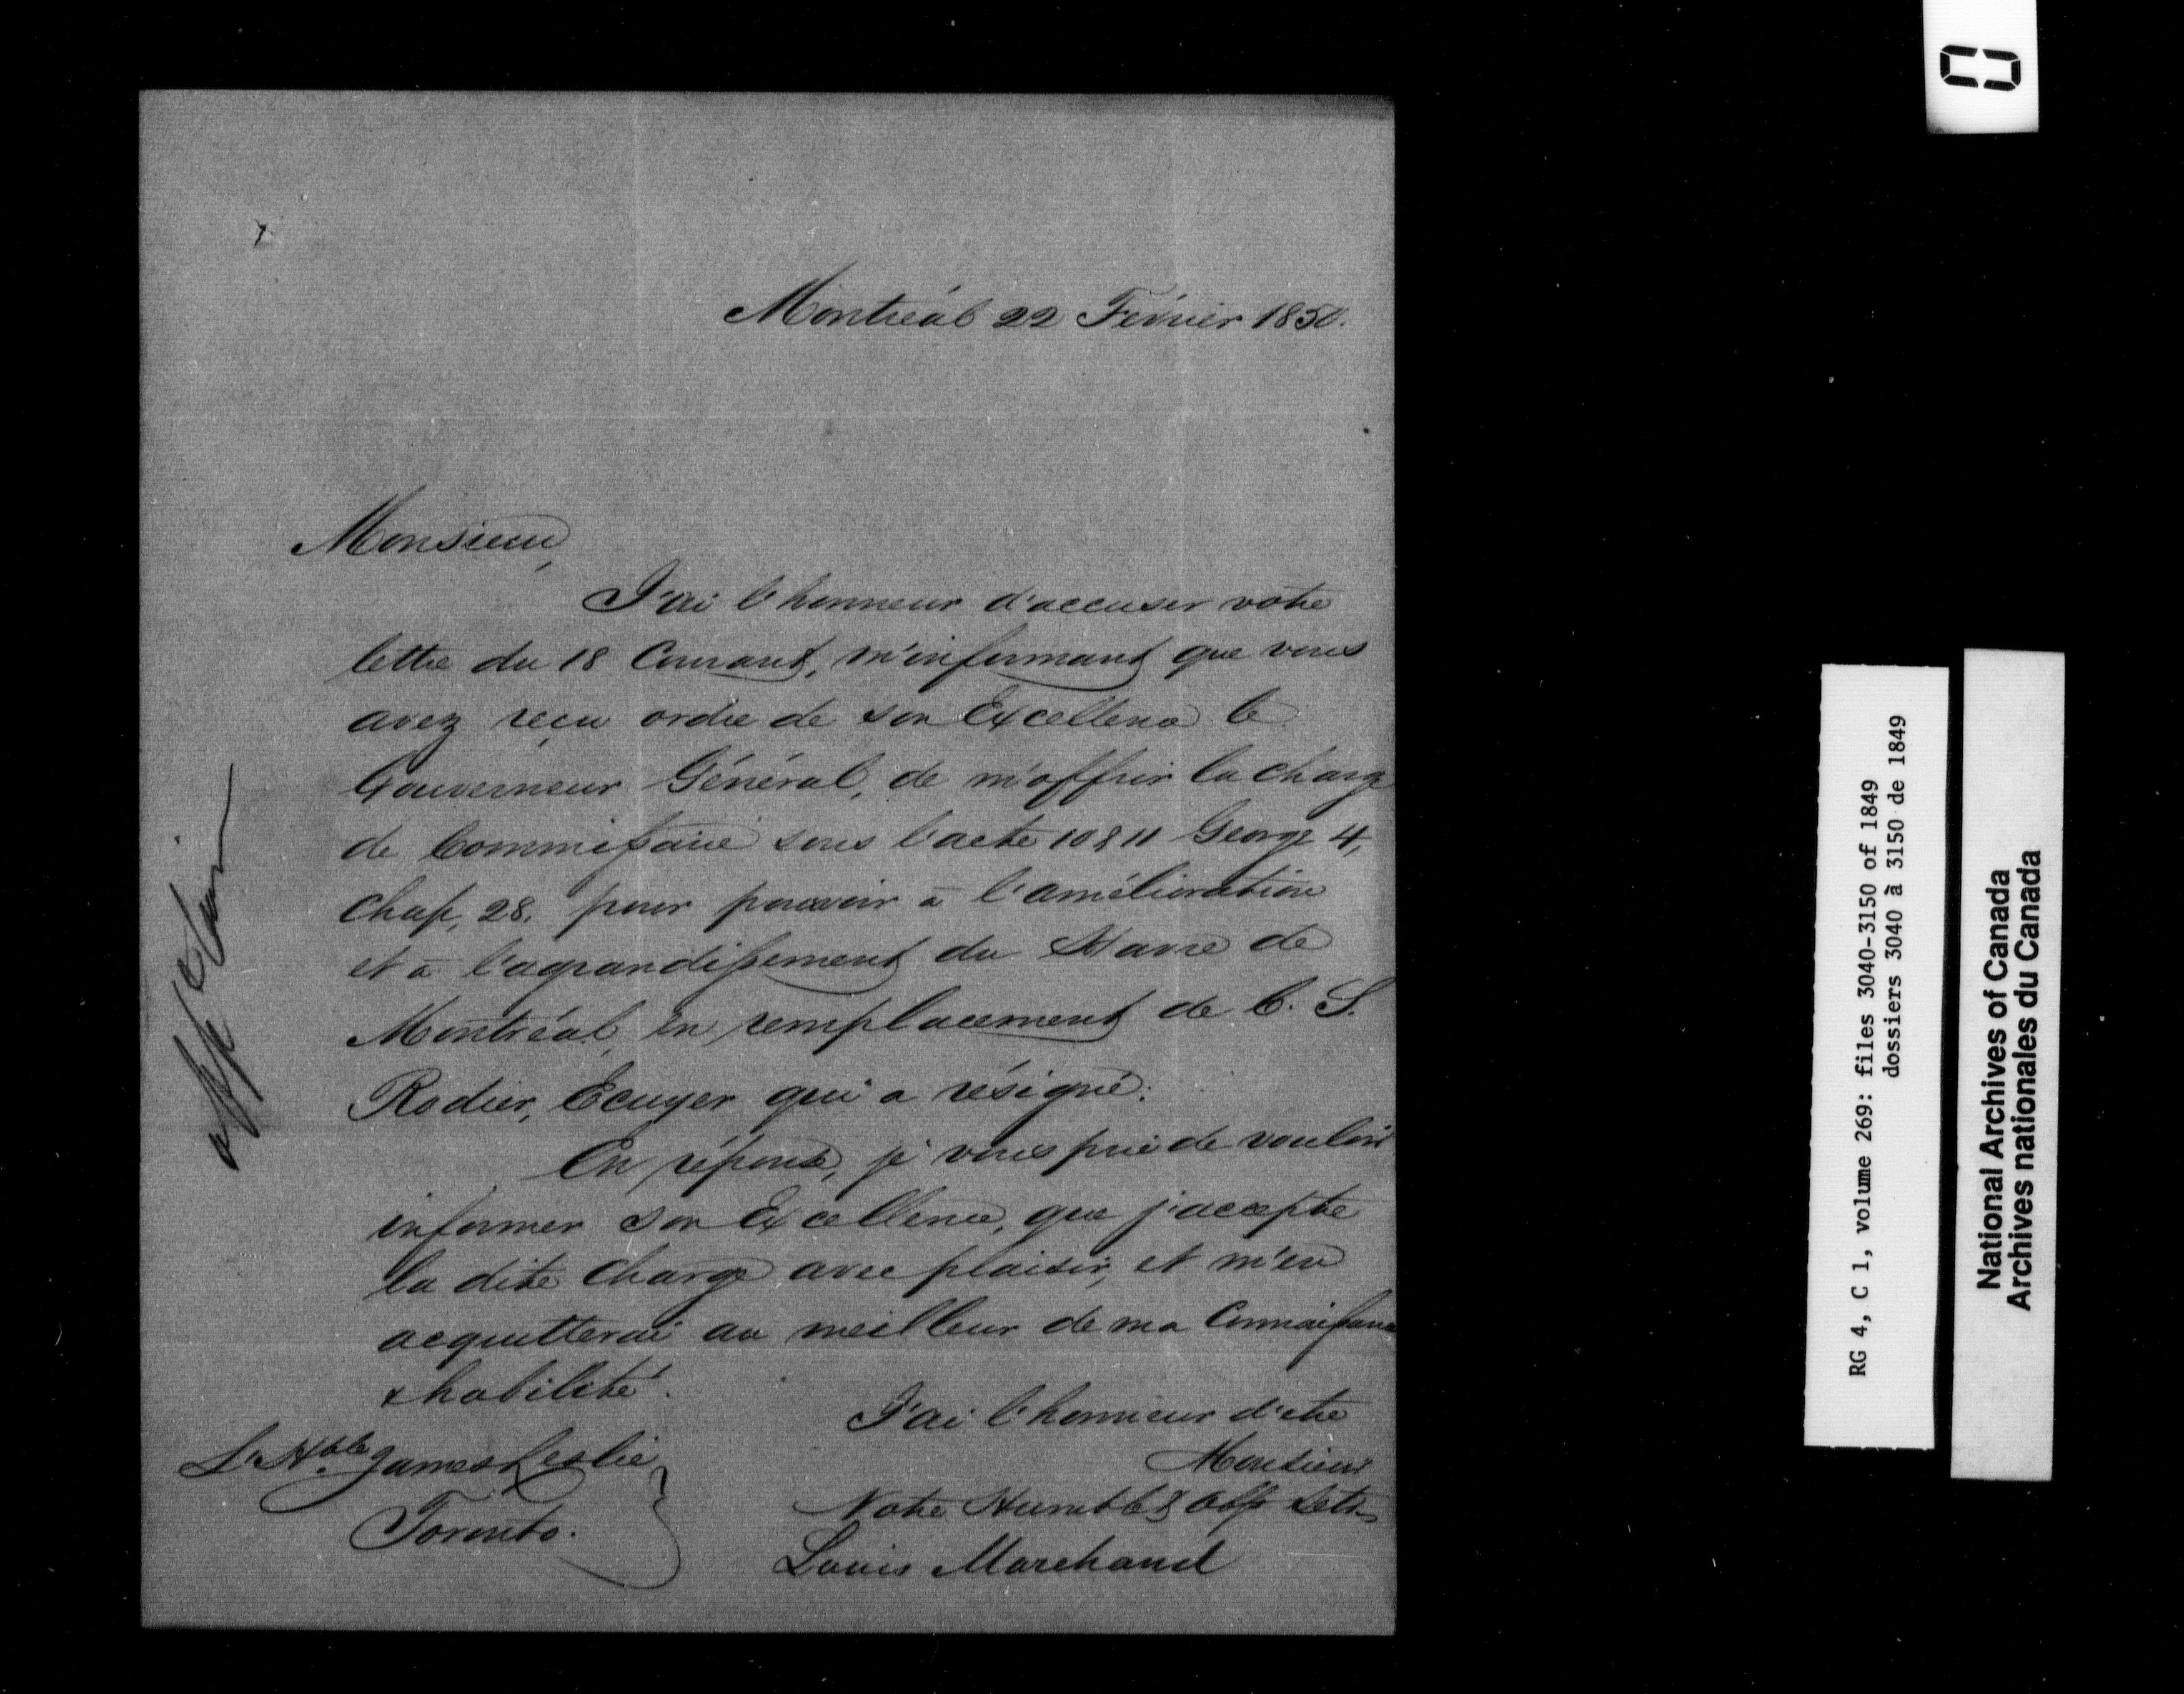 Montréal 22 Février 1850.
Monsieur,
J'ai l'honneur d'accuser votre
lettre du 18 Courant, m'informant que vous
avez reçu ordre de son Excellence le
Gouverneur Général, de m'offrir la charge
de Commissaire sous l'acte 10 & 11 George 4,
Chap, 28, pour pourvoir à l'amélioration
et à l'agrandissement du Havre de
Montréal, en remplacement de C. S.
Rodier, Ecuyer qui a résigné.
En réponse, je vous prie de vouloir
informer son Excellence, que j'accepte
la dite Charge avec plaisir, et m'en
acquitterai au meilleur de ma Connaissance
& habilité.
J'ai l'honneur d'etre
Monsieur
Votre Humble & Obt Sert
Louis Marchand
L'Hble James Leslie
Toronto.
RG 4, C 1, volume 269: files 3040-3150 of 1849
dossiers 3040 à 3150 de 1849
National Archives of Canada
Archives nationales du Canada